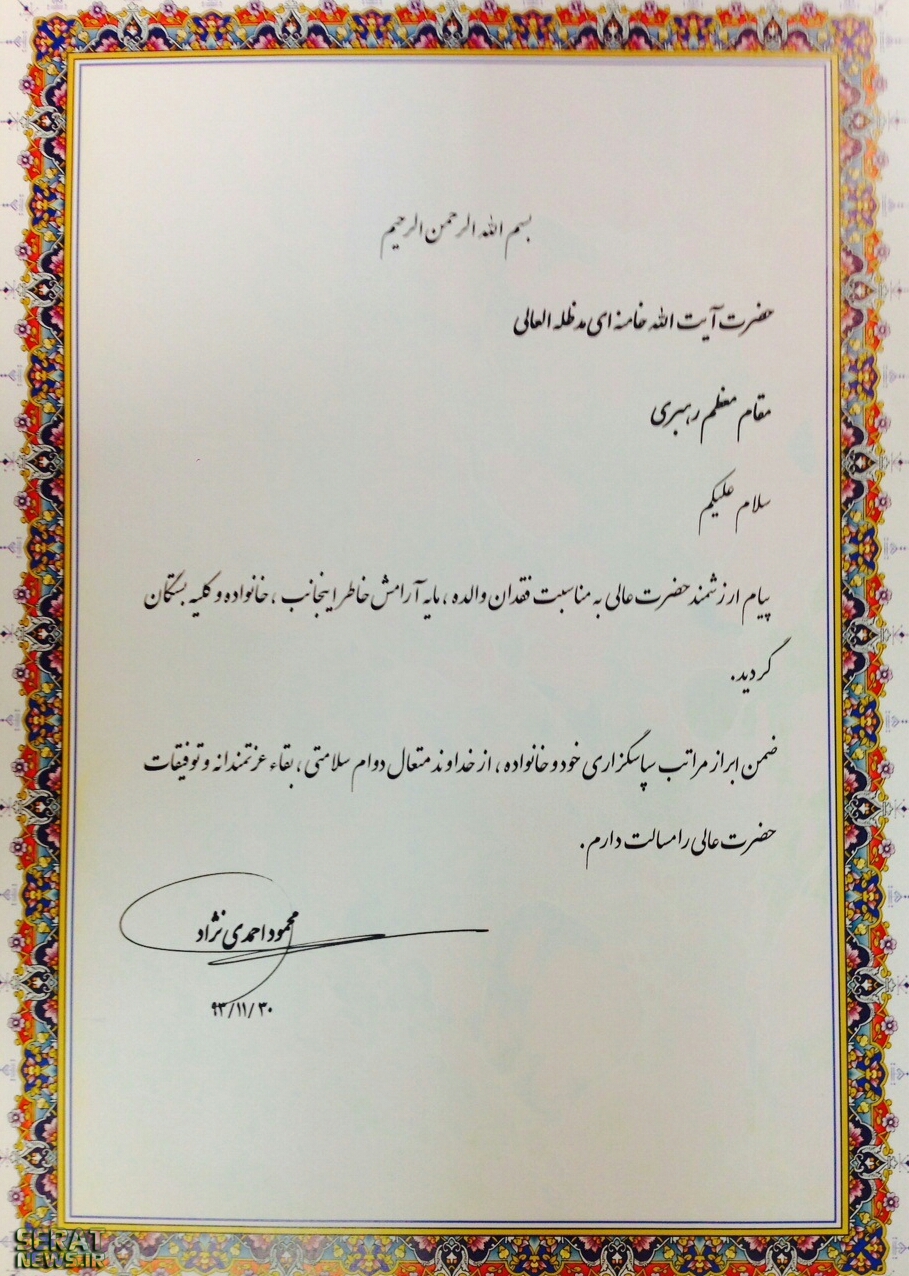 بسم الله الرحمن الرحیم
حضرت آیت الله خامنه ای مدظله العالی
مقام معظم رهبری
سلام علیکم
پیام ارزشمند حضرت عالی به مناسبت فقدان والده، مایه آرامش خاطر اینجانب، خانواده و کلیه بستگان
گردید.
ضمن ابراز مراتب سپاسگزاری خود و خانواده، از خداوند متعال دوام سلامتی، بقاء عزتمندانه و توفیقات
حضرت عالی را مسالت دارم.
محمود احمدی نژاد
۹۳/۱۱/۳۰
SERAT
NEWS.IR